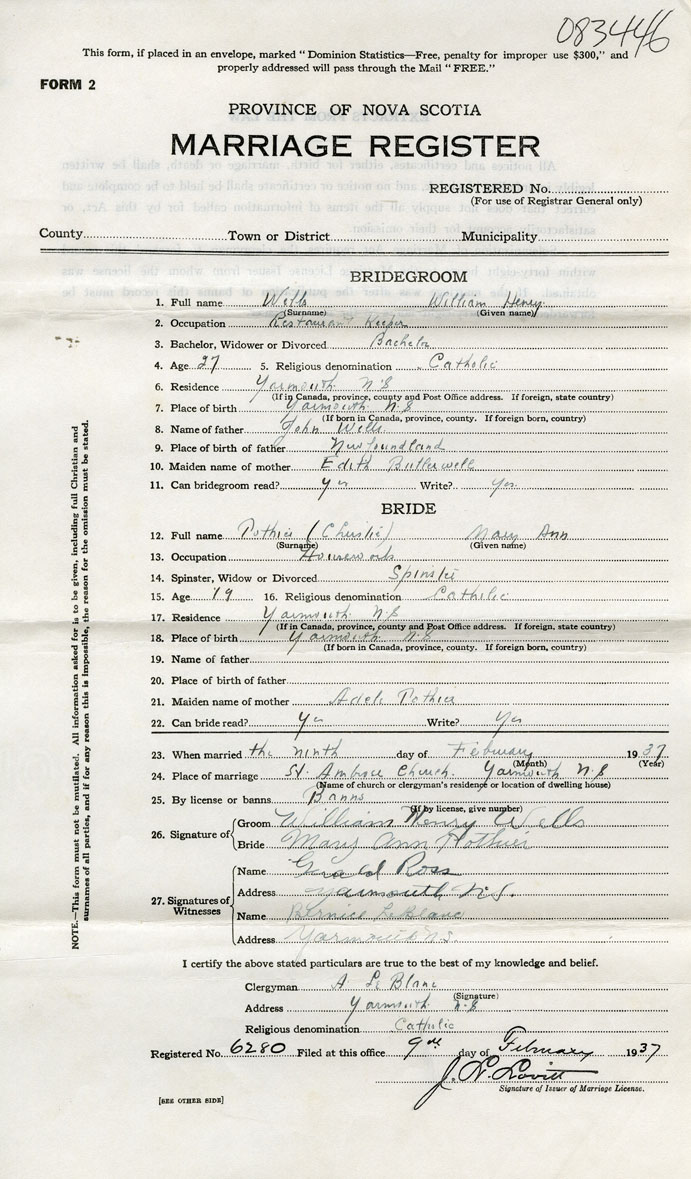 083446
This form, if placed in an envelope, marked "Dominion Statistics—Free, penalty for improper use $300," and
properly addressed will pass through the Mail "FREE."
FORM 2
PROVINCE OF NOVA SCOTIA
MARRIAGE REGISTER
REGISTERED No.
(For use of Registrar General only)
County Town or District Municipality
BRIDEGROOM
1. Full name Wells William Henry
(Surname) (Given name)
2. Occupation Restaurant Keeper
3. Bachelor, Widower or Divorced Bachelor
4. Age 27 5. Religious denomination Catholic
6. Residence Yarmouth N S
(If in Canada, province, county and Post Office address. If foreign, state country)
7. Place of birth Yarmouth N S
(If born in Canada, province, county. If foreign born, country)
8. Name of father John Wells
9. Place of birth of father Newfoundland
10. Maiden name of mother Edith Butterwell
11. Can bridegroom read? yes Write? Yes
BRIDE
12. Full name Pothier ( ) Mary Ann
(Surname) (Given name)
13. Occupation Housework
14. Spinster, Widow or Divorced Spinster
15. Age 19 16. Religious denomination Catholic
17. Residence Yarmouth N S
(If in Canada, province, county and Post Office address. If foreign, state country)
18. Place of birth Yarmouth N S
(If born in Canada, province, county. If foreign born, country)
19. Name of father
20. Place of birth of father
21. Maiden name of mother Adele Pothier
22. Can bride read? Yes Write? Yes
23. When married the ninth day of February 1937
(Month) (Year)
24. Place of marriage St. Ambrose Church. Yarmouth N S
(Name of church or clergyman's residence or location of dwelling house)
25. By license or banns Banns
(If by license, give number)
26. Signature of Groom William Henry Wells
Bride Mary Ann Pothier
27. Signatures of Witnesses
Name Gerald Ross
Address Yarmouth N.S.
Name Bernice LeBlanc
Address Yarmouth N.S.
I certify the above stated particulars are true to the best of my knowledge and belief.
Clergyman A Le Blanc
(Signature)
Address Yarmouth N.S
Religious denomination Catholic
Registered No. 6280 Filed at this office 9th day of February 1937
J. L. Lovitt
Signature of Issuer of Marriage License.
[SEE OTHER SIDE]
NOTE.—This form must not be mutilated. All information asked for is to be given, including full Christian and
surnames of all parties, and if for any reason this is impossible, the reason for the omission must be stated.